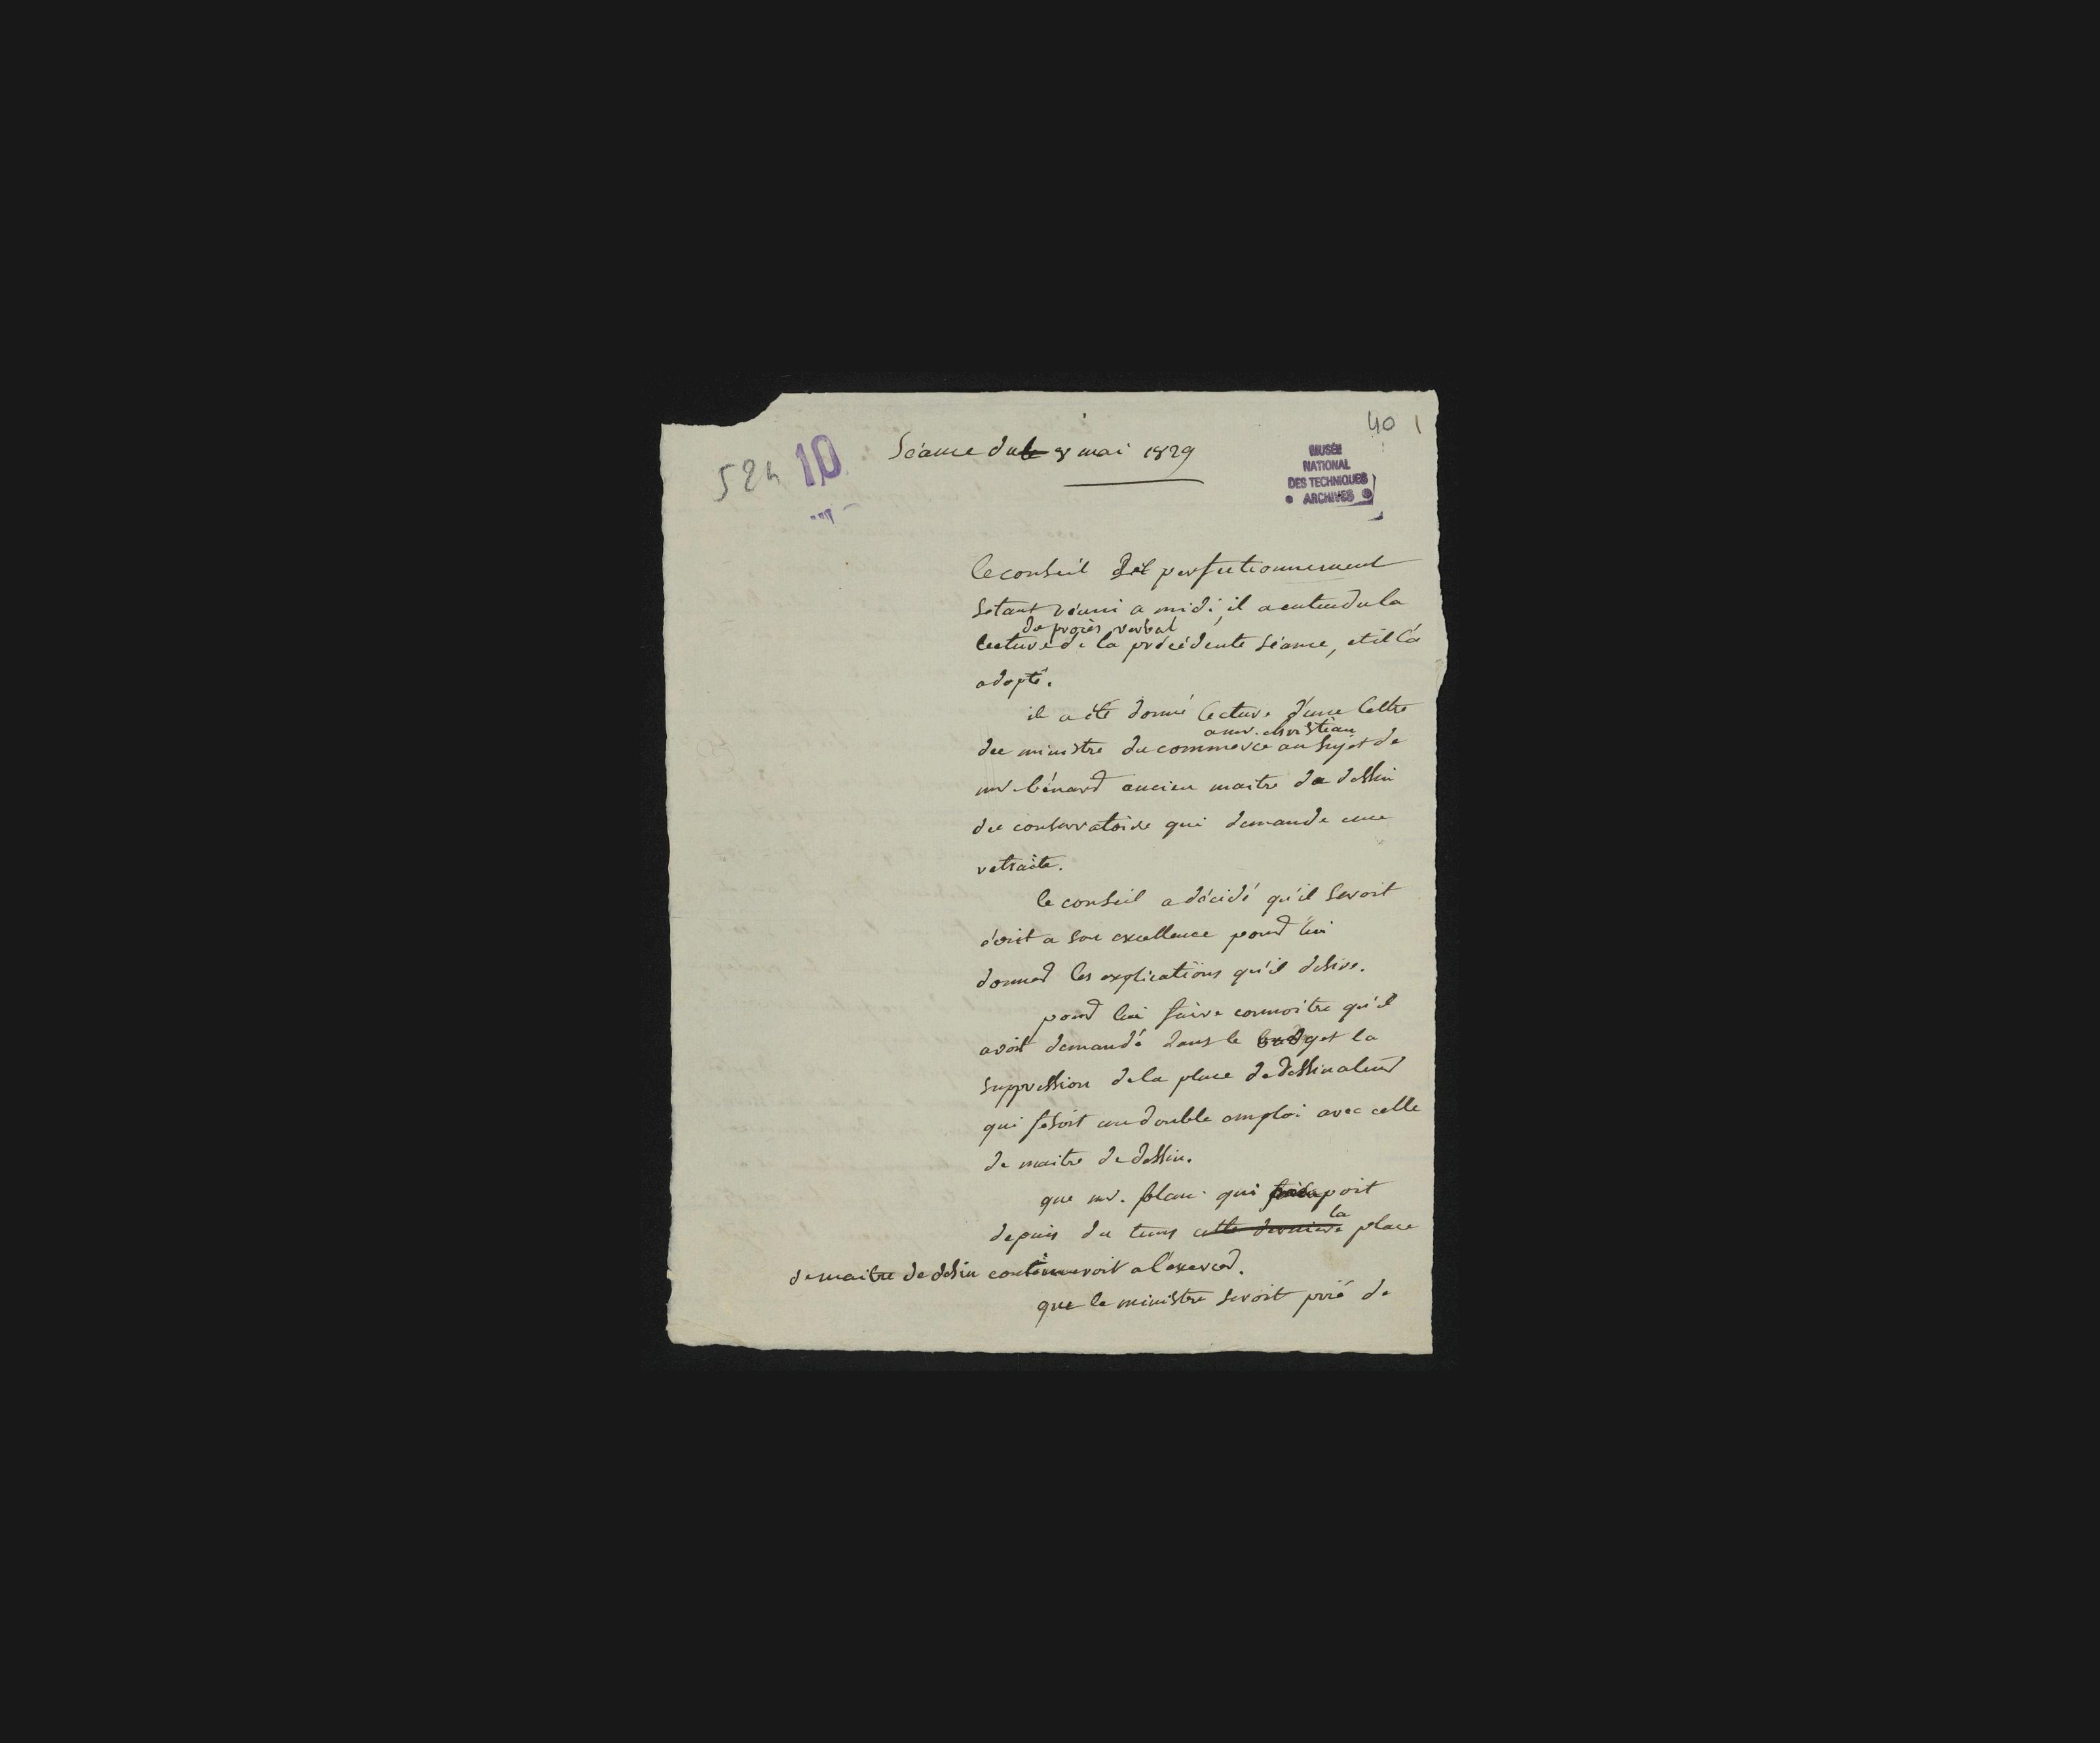 40 1
52h 10
Séance du 8 mai 1829
MUSÉE
NATIONAL
DES TECHNIQUES
ARCHIVES
le conseil de perfectionnement
sétant réuni a midi, il a entendu la
du procès verbal
lecture de la précédente séance, et il l'a
adopté.
il a été donné lecture d'une lettre
a mr. christian
du ministre du commerce au sujet de
mr. bénard ancien maitre de dessin
du conservatoire qui demande une
retraite.
le conseil a décidé qu'il seroit
écrit a son excellence pour lui
donner les explications qu'il desire.
pour lui faire connoitre qu'il
avoit demandé dans le budget la
suppression de la place de dessinateur
qui fesoit un double emploi avec celle
de maitre de dessin.
que mr. blanc qui
la
depuis du tems cette derniere place
de maitre de dessin continueroit a l'exercer.
que le ministre seroit prié de